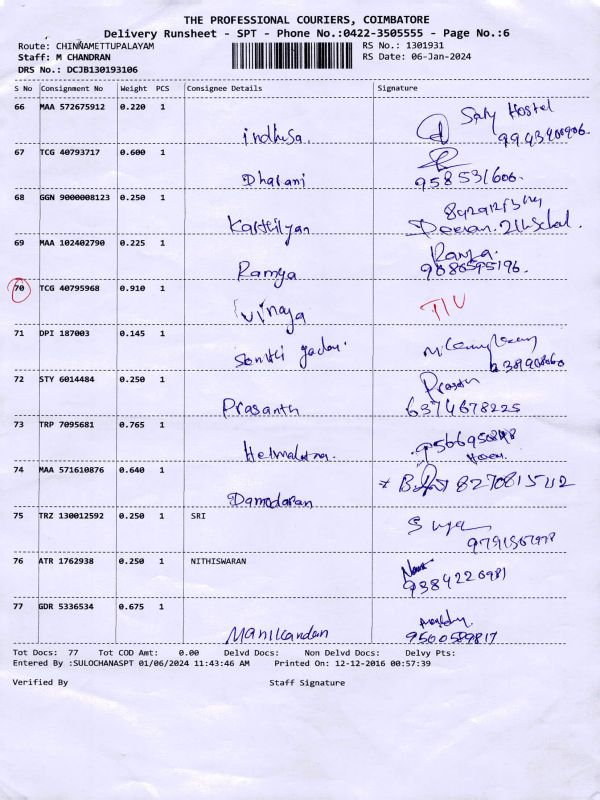 THE PROFESSIONAL COURIERS, COIMBATORE
Delivery Runsheet - SPT - Phone No.:0422-3505555 - Page No.:6
Route: CHINNAMETTUPALAYAM RS No.: 1301931
Staff: M CHANDRAN RS Date: 06-Jan-2024
DRS No.: DCJB130193106
S No Consignment No Weight PCS Consignee Details Signature
66 MAA 572675912 0.220 1
Hostel
indhusa.
67 TCG 40793717 0.600 1
Dharani 958531606.
68 GGN 9000008123 0.250 1
Karthikyan
69 MAA 102402790 0.225 1 Ramya
Ramya 9080595196.
70 TCG 40795968 0.910 1
Vinaya
71 DPI 187003 0.145 1
72 STY 6014484 0.250 1
Prasanth 6374678225
73 TRP 7095681 0.765 1
74 MAA 571610876 0.640 1
8270815112
Damodaran
75 TRZ 130012592 0.250 1 SRI
76 ATR 1762938 0.250 1 NITHISWARAN
9384226981
77 GDR 5336534 0.675 1
Manikandan 9500589817
Tot Docs: 77 Tot COD Amt: 0.00 Delvd Docs: Non Delvd Docs: Delvy Pts:
Entered By :SULOCHANASPT 01/06/2024 11:43:46 AM Printed On: 12-12-2016 00:57:39
Verified By Staff Signature